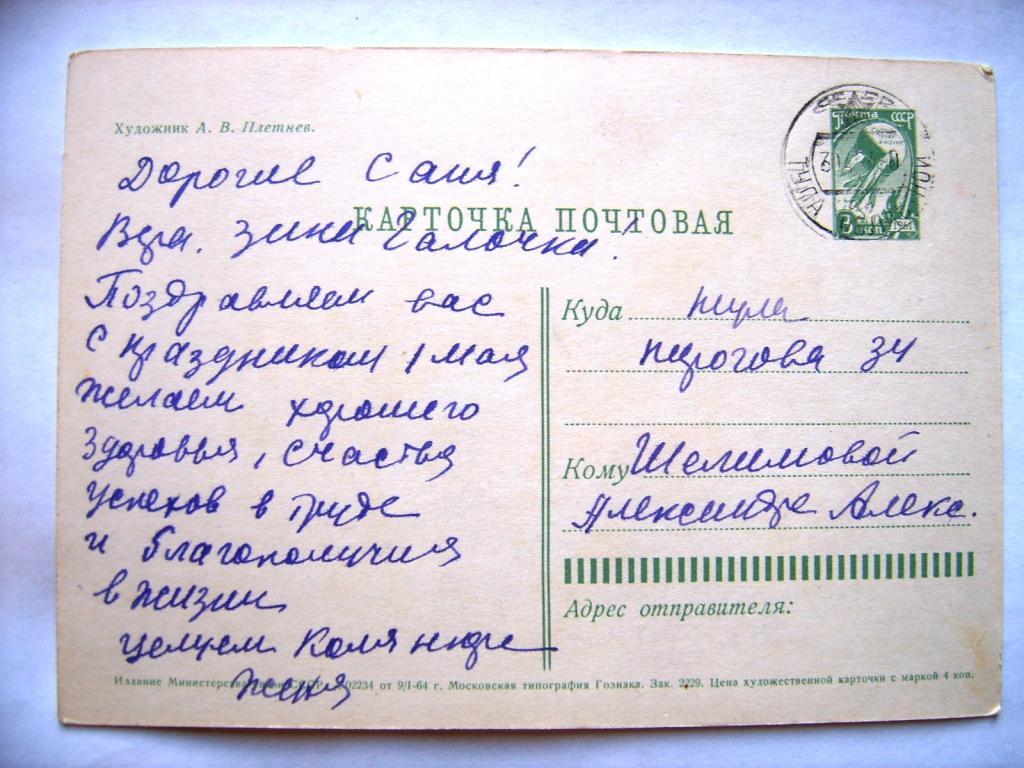 Художник А. В. Плетнев.
Дорогие Саня!
КАРТОЧКА ПОЧТОВАЯ
Вера. Зина Галочка!
Поздравляем вас
с праздником 1 мая
желаем хорошего
здоровья, счастья
успехов в труде
и благополучия
в жизни
целуем Коля Нюра
Женя
Издание Министерства СССР. 02234 от 9/I-64 г. Московская типография Гознака. Зак. 2229. Цена художественной карточки с маркой 4 коп.
ТУЛА
Почта СССР
3 коп 1961
Куда Тула
Пирогова 34
Кому Шелимовой
Александре Алекс.
Адрес отправителя: